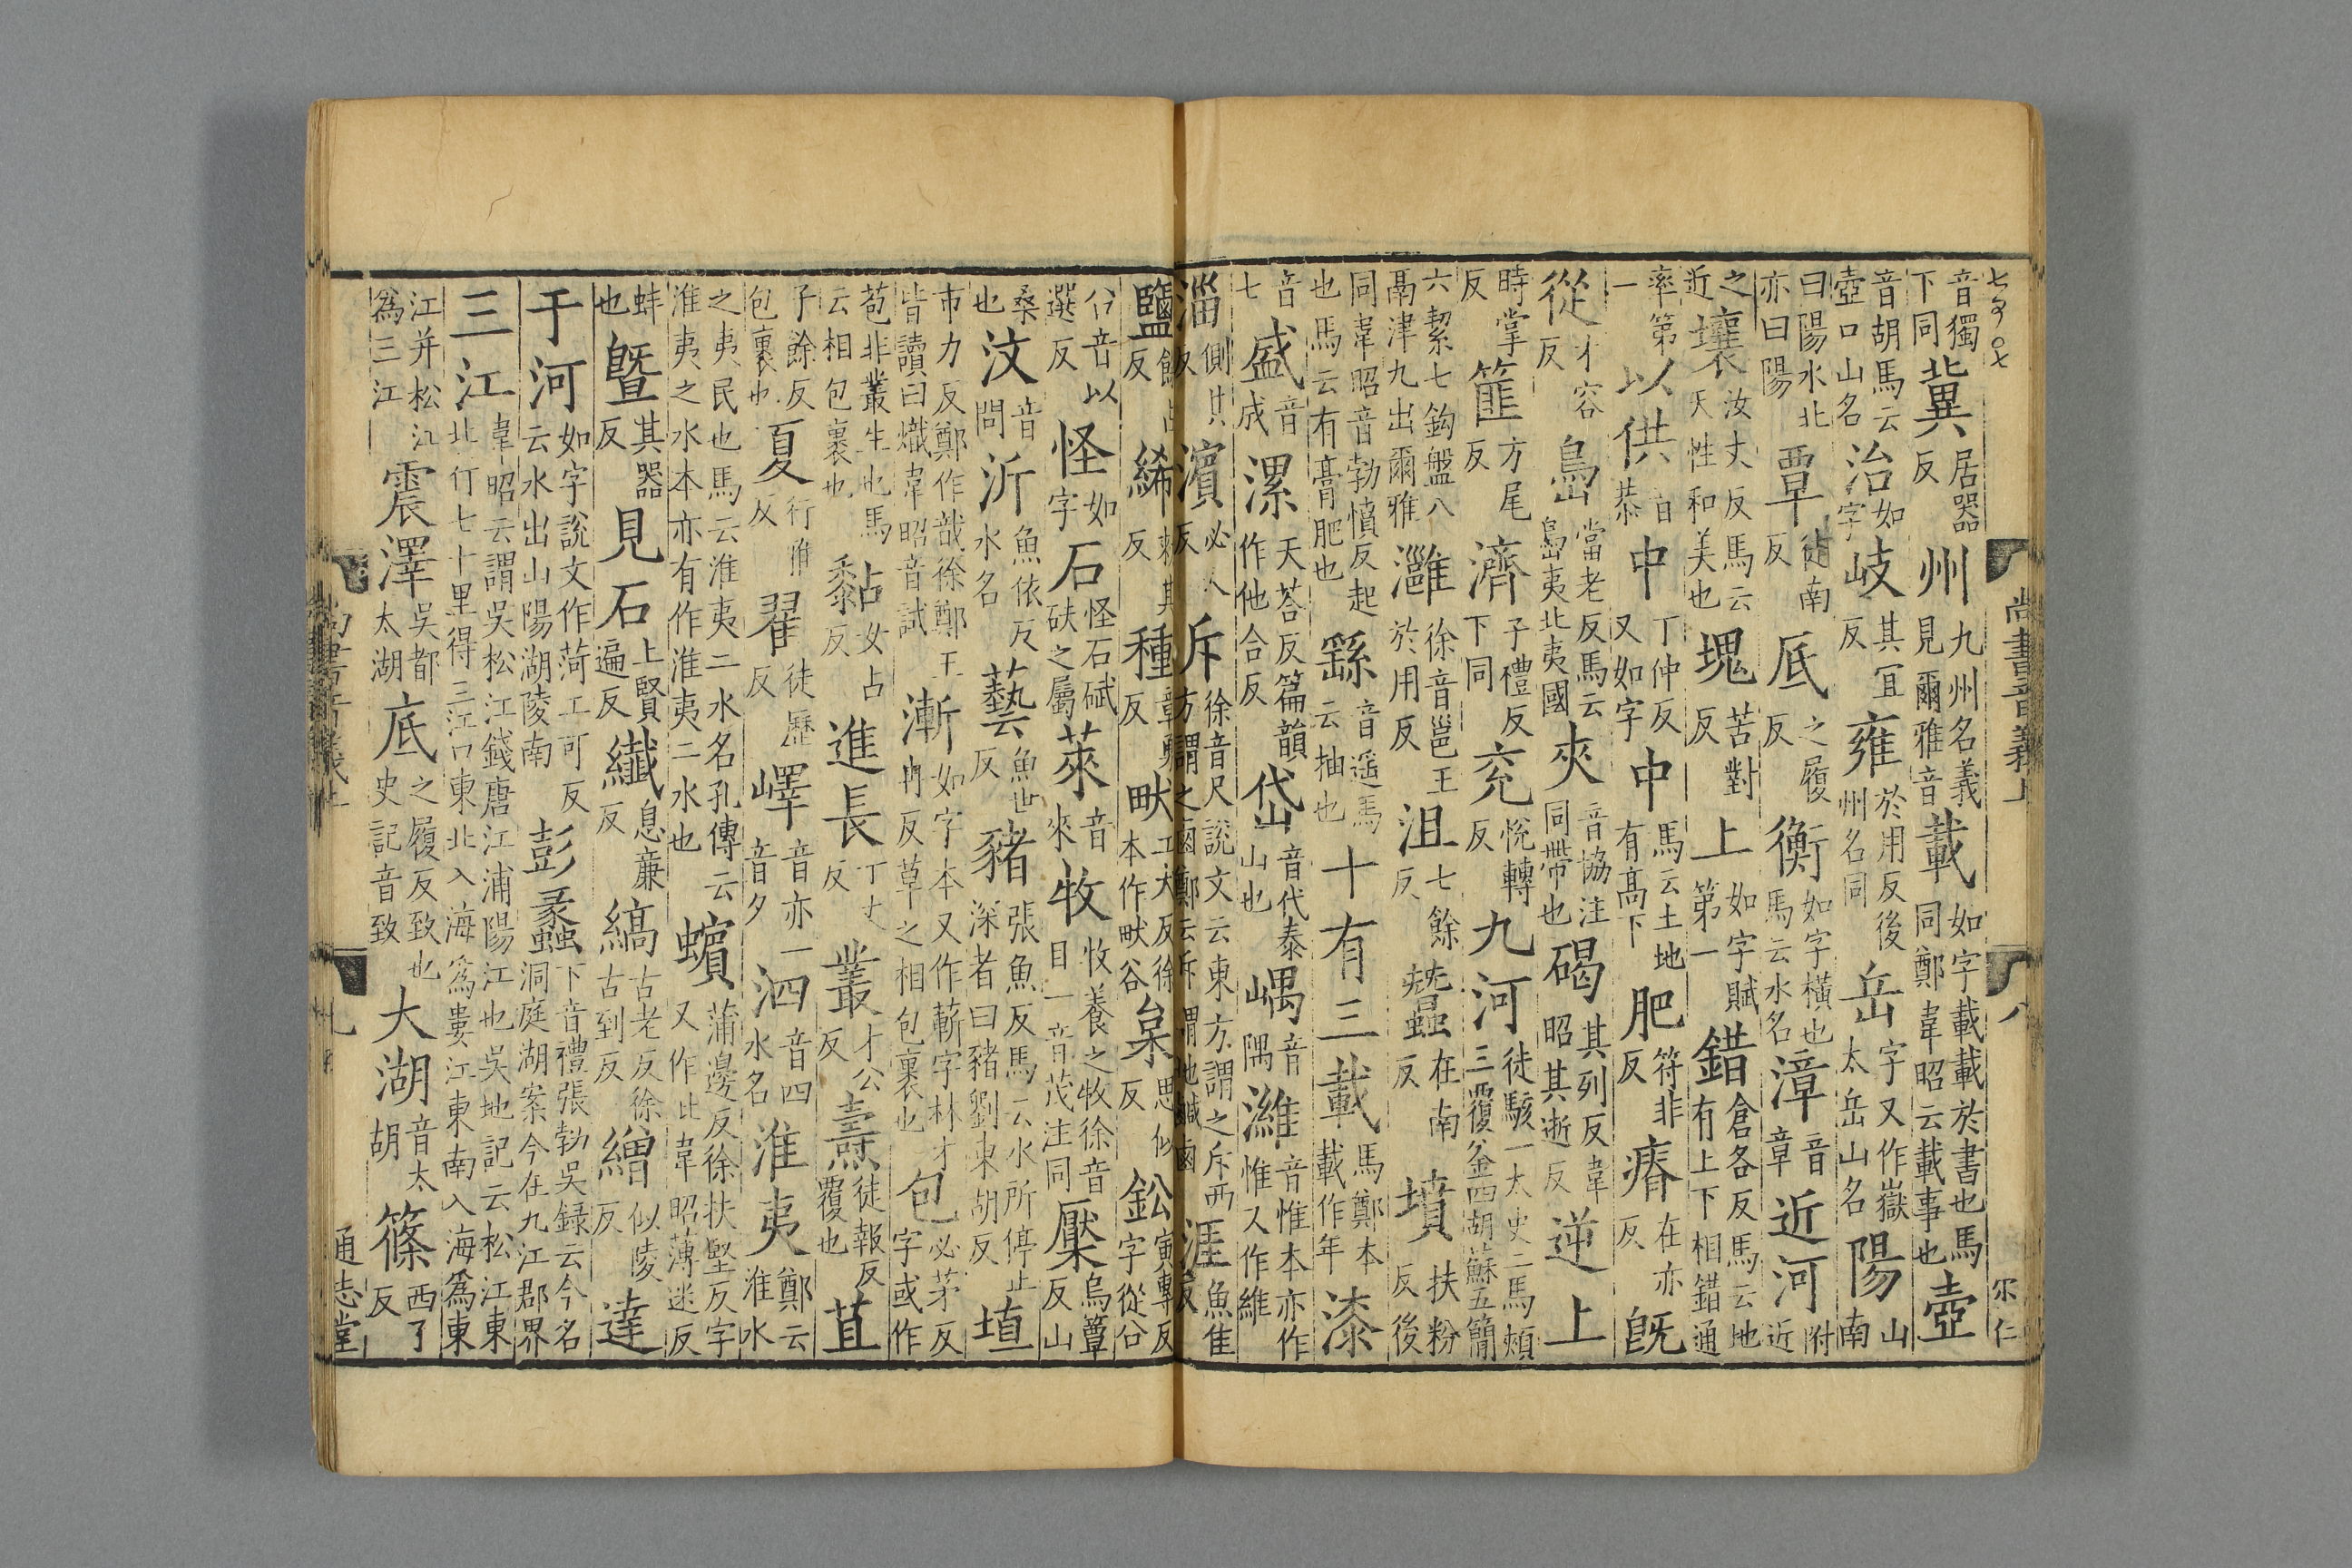 七百〇七 尚書音義上 八 宋仁
音獨下同冀居器反州九州名義見爾雅音載如字載載於書也馬同鄭韋昭云載事也壺
音胡馬云壺口山名治如字岐其宜反雍於用反後州名同岳字又作嶽太岳山名陽山南
曰陽水北亦曰陽覃徒南反厎之履反衡如字橫也馬云水名漳音章近河附近
之近壤汝丈反馬云天性和美也塊苦對反上如字賦第一錯倉各反馬云地有上下相錯通
率第一以供音恭中丁仲反又如字中馬云土地有高下肥符非反瘠在亦反旣
從才容反島當老反馬云島夷北夷國夾音協注同帶也碣其列反韋昭其逝反逆上
時掌反篚方尾反濟子禮反下同兖悅轉反九河徒駭一太史二馬頰三覆釜四胡蘇五簡
六絜七鈎盤八鬲津九出爾雅灉徐音邕王於用反沮七餘反蠶在南反墳扶粉反後
同韋昭音勃憤反起也馬云有膏肥也繇音遥馬云抽也十有三載馬鄭本載作年漆
音七盛音成漯天荅反篇韻作他合反岱音代泰山也嵎音隅濰音惟本亦作惟又作維
淄側其反濱必人反斥徐音尺說文云東方謂之斥西方謂之鹵鄭云斥謂地鹹鹵涯魚隹反
鹽餘占反絺敕其反種章勇反畎工犬反徐本作畎谷枲思似反鈆寅專反字從㕣
㕣音以選反怪如字石怪石碔砆之屬萊音來牧牧養之牧徐音目一音茂注同檿烏簟反山
桑也汶音問沂魚依反水名藝魚世反豬張魚反馬云水所停止深者曰豬劉東胡反埴
市力反鄭作哉徐鄭王皆讀曰熾韋昭音試漸如字本又作蔪字林才冉反草之相包裹也包必茅反字或作
苞非叢生也馬云相包裹也黏女占反進長丁丈反叢才公反燾徒報反覆也苴
子餘反包裹也夏行雅反翟徒歷反嶧音亦一音夕泗音四水名淮夷鄭云淮水
之夷民也馬云淮夷二水名孔傳云淮夷之水本亦有作淮夷二水也蠙蒲邊反徐扶堅反字又作玭韋昭薄迷反
蚌也曁其器反見石上賢遍反纖息廉反縞古老反徐古到反繒似陵反達
于河如字說文作菏工可反云水出山陽湖陵南彭蠡下音禮張勃吳録云今名洞庭湖案今在九江郡界
三江韋昭云謂吳松江錢唐江浦陽江也吳地記云松江東北行七十里得三江口東北入海爲婁江東南入海爲東
江并松江爲三江震澤吳都太湖厎之履反致也史記音致大湖音太胡篠西了反
尚書音義上 九 通志堂